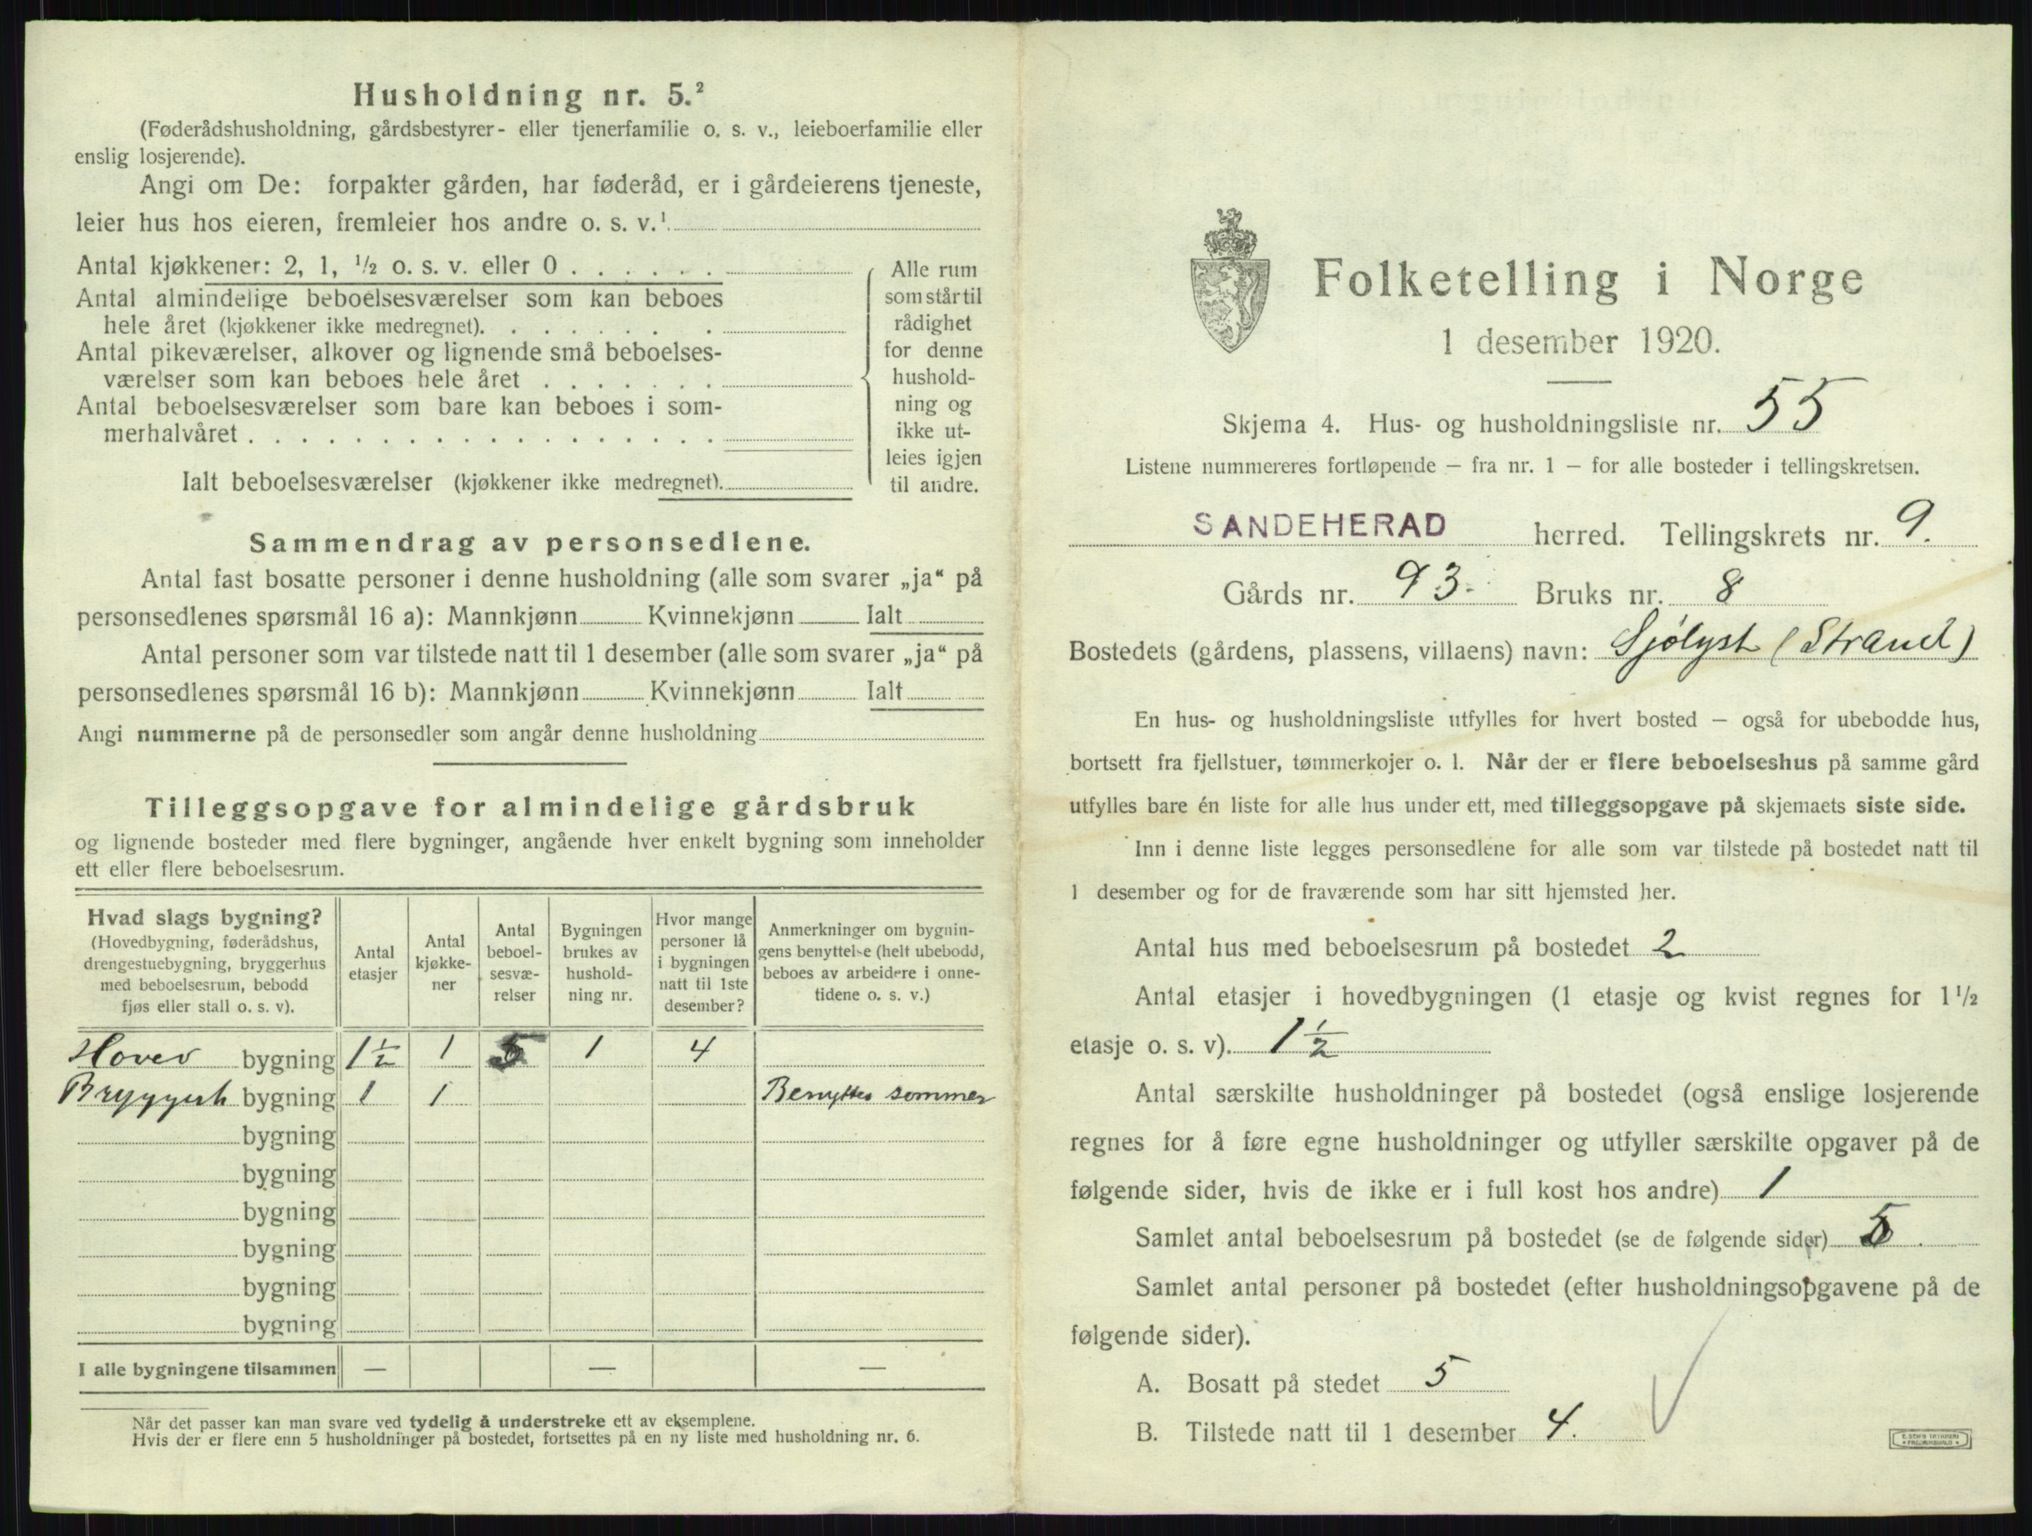 Husholdning nr. 5.²
(Føderådshusholdning, gårdsbestyrer- eller tjenerfamilie o. s. v., leieboerfamilie eller
enslig losjerende).
Angi om De: forpakter gården, har føderåd, er i gårdeierens tjeneste,
leier hus hos eieren, fremleier hos andre o. s. v.¹
Antal kjøkkener: 2, 1, ½ o. s. v. eller 0 . . . . . .
Antal almindelige beboelsesværelser som kan beboes
hele året (kjøkkener ikke medregnet). . . . . . . .
Antal pikeværelser, alkover og lignende små beboelses-
værelser som kan beboes hele året . . . . . . .
Antal beboelsesværelser som bare kan beboes i som-
merhalvåret . . . . . . . . . . . . . . . . . .
Ialt beboelsesværelser (kjøkkener ikke medregnet).
Alle rum
som står til
rådighet
for denne
hushold-
ning og
ikke ut-
leies igjen
til andre.
Sammendrag av personsedlene.
Antal fast bosatte personer i denne husholdning (alle som svarer „ja“ på
personsedlenes spørsmål 16 a): Mannkjønn Kvinnekjønn Ialt
Antal personer som var tilstede natt til 1 desember (alle som svarer „ja“ på
personsedlenes spørsmål 16 b): Mannkjønn Kvinnekjønn Ialt
Angi nummerne på de personsedler som angår denne husholdning
Tilleggsopgave for almindelige gårdsbruk
og lignende bosteder med flere bygninger, angående hver enkelt bygning som inneholder
ett eller flere beboelsesrum.
Hvad slags bygning?
(Hovedbygning, føderådshus,
drengestuebygning, bryggerhus
med beboelsesrum, bebodd
fjøs eller stall o. s. v).
Antal
etasjer
Antal
kjøkke-
ner
Antal
beboel-
sesvæ-
relser
Bygningen
brukes av
hushold-
ning nr.
Hvor mange
personer lå
i bygningen
natt til 1ste
desember?
Anmerkninger om bygnin-
gens benyttelse (helt ubebodd,
beboes av arbeidere i onne-
tidene o. s. v.)
Hoved bygning 1½ 1 5 1 4
Bryggerh bygning 1 1 Benyttes sommer
bygning
bygning
bygning
bygning
bygning
bygning
I alle bygningene tilsammen — — —
Når det passer kan man svare ved tydelig å understreke ett av eksemplene.
Hvis der er flere enn 5 husholdninger på bostedet, fortsettes på en ny liste med husholdning nr. 6.
Folketelling i Norge
1 desember 1920.
Skjema 4. Hus- og husholdningsliste nr. 55
Listene nummereres fortløpende – fra nr. 1 – for alle bosteder i tellingskretsen.
SANDEHERAD herred. Tellingskrets nr. 9.
Gårds nr. 93. Bruks nr. 8
Bostedets (gårdens, plassens, villaens) navn: Sjølyst (Strand)
En hus- og husholdningsliste utfylles for hvert bosted – også for ubebodde hus,
bortsett fra fjellstuer, tømmerkojer o. l. Når der er flere beboelseshus på samme gård
utfylles bare én liste for alle hus under ett, med tilleggsopgave på skjemaets siste side.
Inn i denne liste legges personsedlene for alle som var tilstede på bostedet natt til
1 desember og for de fraværende som har sitt hjemsted her.
Antal hus med beboelsesrum på bostedet 2
Antal etasjer i hovedbygningen (1 etasje og kvist regnes for 1½
etasje o. s. v). 1½
Antal særskilte husholdninger på bostedet (også enslige losjerende
regnes for å føre egne husholdninger og utfyller særskilte opgaver på de
følgende sider, hvis de ikke er i full kost hos andre) 1
Samlet antal beboelsesrum på bostedet (se de følgende sider) 5
Samlet antal personer på bostedet (efter husholdningsopgavene på de
følgende sider).
A. Bosatt på stedet 5
B. Tilstede natt til 1 desember 4.